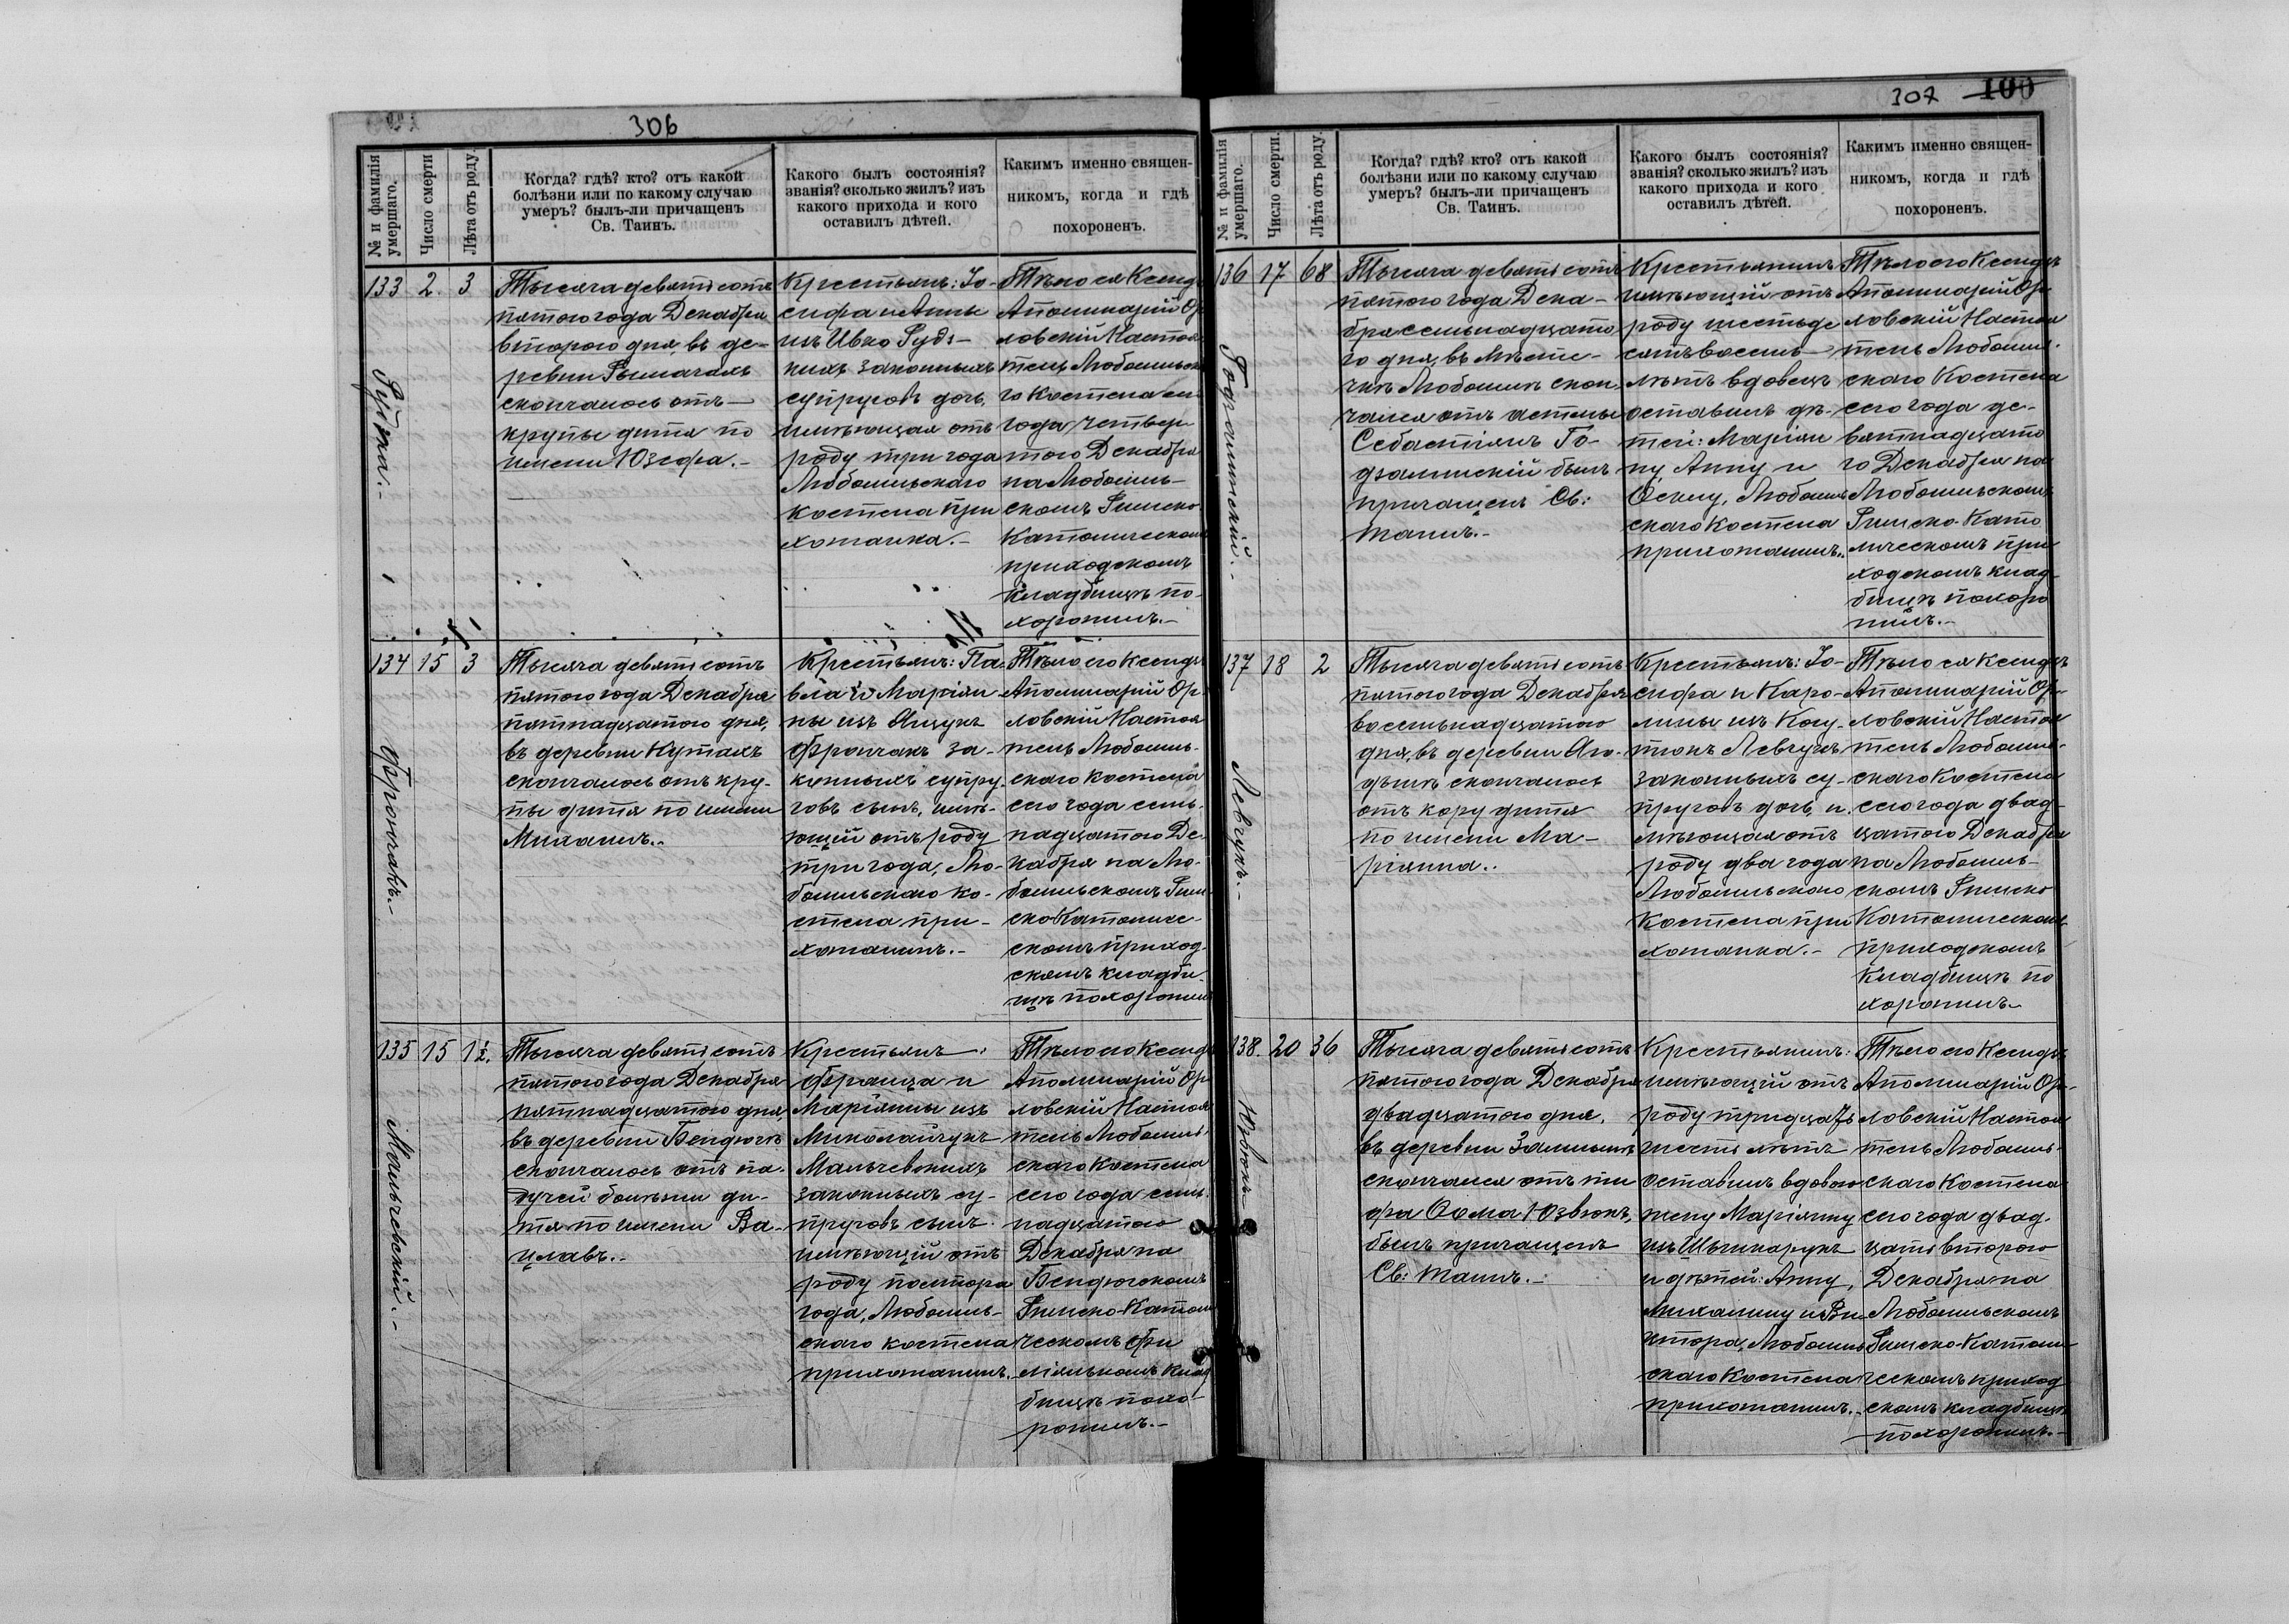 306
№ и фамилія умершаго.
Число смерти
Лѣта отъ роду.
Когда? гдѣ? кто? отъ какой
болѣзни или по какому случаю
умеръ? былъ-ли причащенъ
Св. Таинъ.
Какого былъ состоянія?
званія? сколько жилъ? изъ
какого прихода и кого
оставилъ дѣтей.
Какимъ именно священ-
никомъ, когда и гдѣ
похороненъ.
133 2. 3
Тысяча девятьсотъ
пятого года Декабря
второго дня, въ де-
ревни Рымачахъ
скончалось отъ
крупы дитя по
имени Юзефа.-
Крестьянъ: Іо-
сифа и Анны
изъ Ивко Гудз-
кихъ законныхъ
супруговъ дочь,
имѣющая отъ
роду три года
Любомльскаго
костела при
хожанка.-
Тѣло ея Ксендз
Аполинарій Ор
ловскій Настоя
тель Любомльска
го Костела сего
года четвер
того Декабря
на Любомль-
скомъ Римско
Католическомъ
приходскомъ
кладбищѣ по-
хоронилъ.-
134 15 3
Франчакъ.-
Тысяча девятьсотъ
пятого года Декабря
пятнадцатого дня,
въ деревни Кутахъ
скончалось отъ кру-
пы дитя по имени
Михаилъ.-
Крестьянъ: Па-
вла и Маріян
ны изъ Яцукъ
Франчакъ за-
конныхъ супру-
говъ сынъ, имѣ-
ющій отъ роду
три года, Лю-
бомльскаго ко-
стела при-
хожанинъ.-
Тѣло его Ксендз
Аполинарій Ор
ловскій Настоя
тель Любомль-
скаго костела
сего года семь-
надцатого Де-
кабря на Лю-
бомльскомъ Рим
ско Католиче-
скомъ приход-
скомъ кладби-
щѣ похоронилъ
135 15 1½.
Мальчевскій.-
Тысяча девятьсотъ
пятого года Декабря
пятнадцатого дня,
въ деревни Бендюгѣ
скончалось отъ па-
дучей болѣзни ди-
тя по имени Ва-
цлавъ.-
Крестьянъ:
Франца и
Маріянны изъ
Миколайчукъ
Мальчевскихъ
законныхъ су-
пруговъ сынъ
имѣющій отъ
роду полтора
года, Любомль-
скаго костела
прихожанинъ.
Тѣло его Ксендз
Аполинарій Ор
ловскій Настоя
тель Любомль-
скаго Костела
сего года семь
надцатого
Декабря на
Бендюгскомъ
Римско-Католи
ческомъ фи
ліяльномъ клад
бищѣ похо-
ронилъ.-
307 100
№ и фамилія умершаго.
Число смерти.
Лѣта отъ роду.
Когда? гдѣ? кто? отъ какой
болѣзни или по какому случаю
умеръ? былъ-ли причащенъ
Св. Таинъ.
Какого былъ состоянія?
званія? сколько жилъ? изъ
какого прихода и кого
оставилъ дѣтей.
Какимъ именно священ-
никомъ, когда и гдѣ
похороненъ.
136 17 68
Тысяча девятьсотъ
пятого года Дека-
бря семьнадцато
го дня, въ Мѣсте-
чкѣ Любомлѣ скон-
чался отъ астмы
Себастіянъ Го-
дзалинскій былъ
причащенъ Св:
таинъ.-
Крестьянинъ
имѣющій отъ
роду шестьде
сятъ восемь
лѣтъ вдовецъ
оставилъ дѣ-
тей: Маріян
ну Анну и
Любомль
скаго костела
прихожанинъ.
Тѣло его Ксендзъ
Аполинарій Ор-
ловскій Настоя
тель Любомль-
скаго Костела
сего года де-
вятнадцато
го Декабря на
Любомльскомъ
Римско-Като
лическомъ при
ходскомъ клад-
бищѣ похоро
нилъ.-
137 18 2
Левчукъ.-
Тысяча девятьсотъ
пятого года Декабря
восемьнадцатого
дня, въ деревни Яго-
дынѣ скончалось
отъ кору дитя
по имени Ма-
ріянна.-
Крестьянъ: Іо-
сифа и Каро-
лины изъ
Левчукъ
законныхъ су-
пруговъ дочь, и-
мѣющая отъ
роду два года
Любомльского
костела при
хожанка.-
Тѣло ея Ксендзъ
Аполинарій Ор-
ловскій Настоя
тель Любомль-
скаго Костела
сего года двад-
цатого Декабря
на Любомль-
скомъ Римско
Католическомъ
приходскомъ
кладбищѣ по
хоронилъ.-
138. 20 36
Тысяча девятьсотъ
пятого года Декабря
двадцатого дня,
въ деревни Замлыньѣ
скончался отъ ти
фа Ѳома Юзвюкъ,
былъ причащенъ
Св: таинъ.-
Крестьянинъ:
имѣющій отъ
роду тридцать
шесть лѣтъ
оставилъ вдовою
жену Маріянну
изъ
и дѣтей: Анну,
Михалину и Ви
ктора, Любомль
скаго Костела
прихожанинъ.-
Тѣло его Ксендзъ
Аполинарій Ор-
ловскій Настоя
тель Любомль-
скаго Костела
сего года двад-
цать второго
Декабря на
Любомльскомъ
Римско-Католи
ческомъ приход
скомъ кладбищѣ
похоронилъ.-